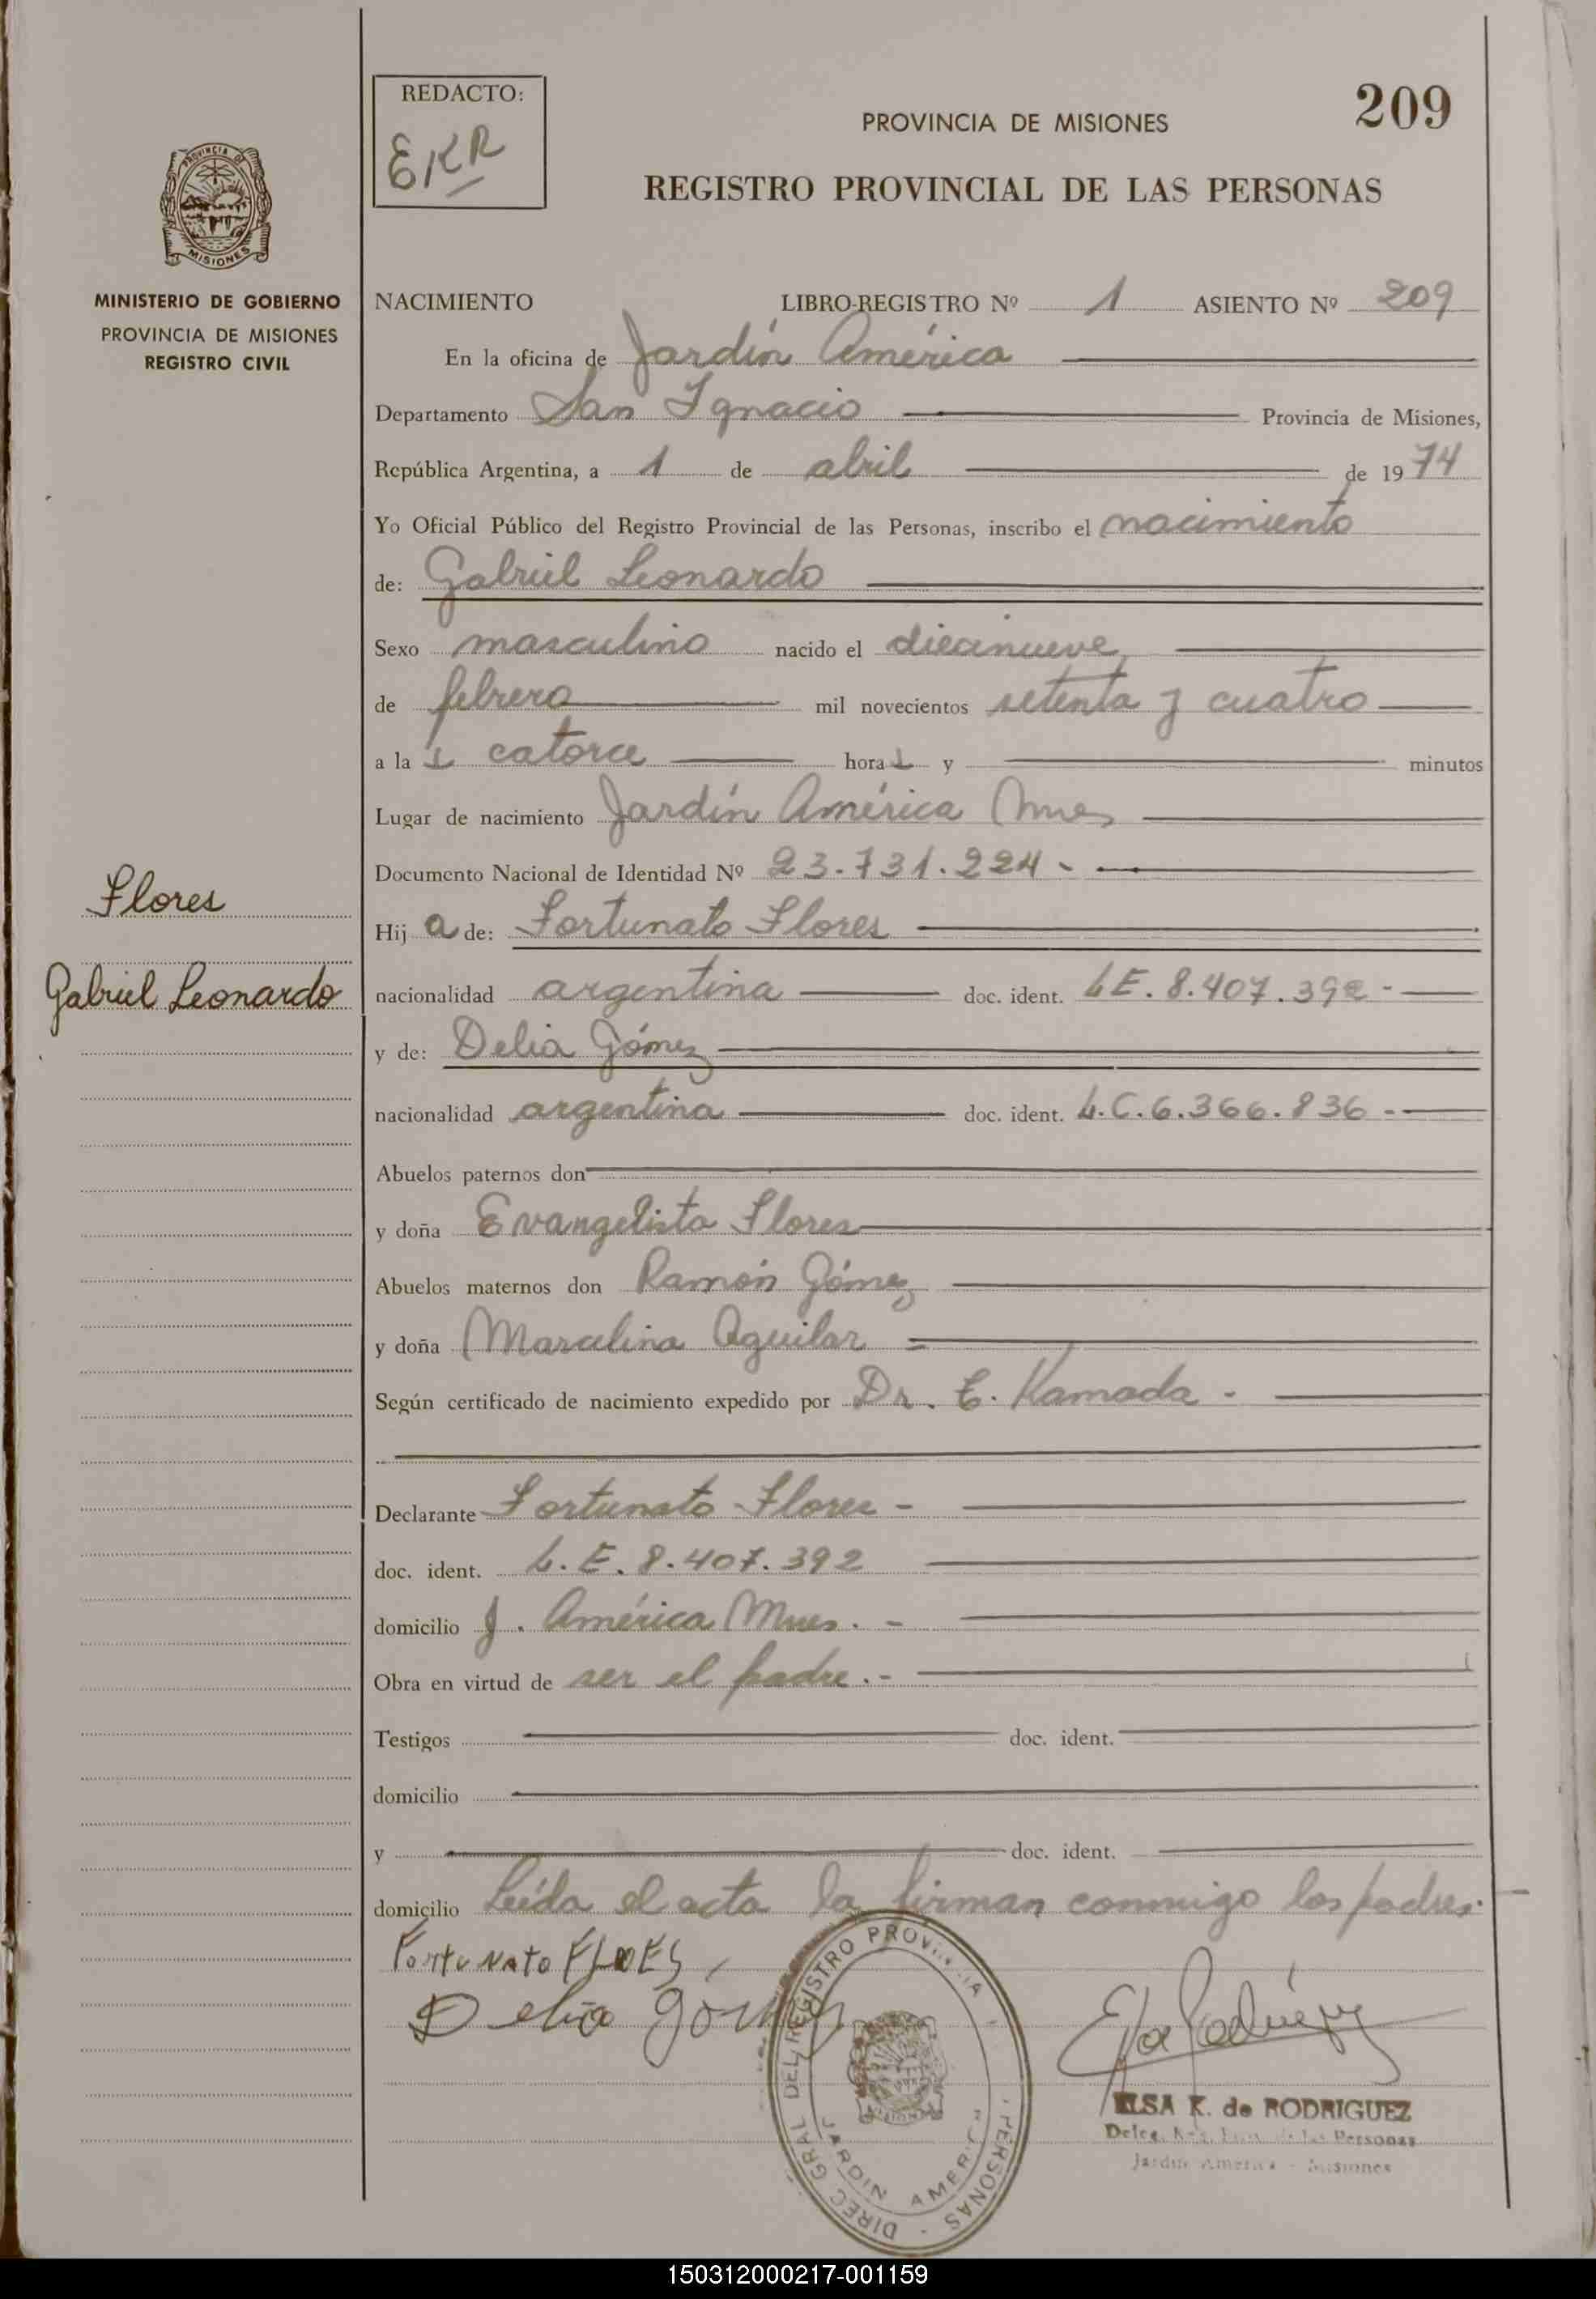 REDACTO:
EKR
209
PROVINCIA DE MISIONES
REGISTRO PROVINCIAL DE LAS PERSONAS
PROVINCIA DE
MISIONES
MINISTERIO DE GOBIERNO
PROVINCIA DE MISIONES
REGISTRO CIVIL
NACIMIENTO LIBRO-REGISTRO Nº 1 ASIENTO Nº 209
En la oficina de Jardín América
Departamento San Ignacio Provincia de Misiones,
República Argentina, a 1 de abril de 1974
Yo Oficial Público del Registro Provincial de las Personas, inscribo el nacimiento
de: Gabriel Leonardo
Sexo masculino nacido el diecinueve
de febrero mil novecientos setenta y cuatro
a las catorce horas y minutos
Lugar de nacimiento Jardín América Mnes
Documento Nacional de Identidad Nº 23.731.224 -
Flores
Hij o de: Fortunato Flores
Gabriel Leonardo
nacionalidad argentina doc. ident. LE. 8.407.392 -
y de: Delia Gómez
nacionalidad argentina doc. ident. L.C. 6.366.836 -
Abuelos paternos don
y doña Evangelista Flores
Abuelos maternos don Ramón Gómez
y doña Marcelina Aguilar
Según certificado de nacimiento expedido por Dr. E. Kamada -
Declarante Fortunato Flores -
doc. ident. L.E. 8.407.392
domicilio J. América Mnes. -
Obra en virtud de ser el padre. -
Testigos doc. ident.
domicilio
y doc. ident.
domicilio Leída el acta la firman conmigo los padres.
Fortunato FLOES
Delia Gomez
DIREC GRAL DEL REGISTRO PROV PERSONAS
JARDIN AMERICA
ELSA K. de RODRIGUEZ
Deleg. Reg. Prov. de las Personas
Jardín América - Misiones
150312000217-001159